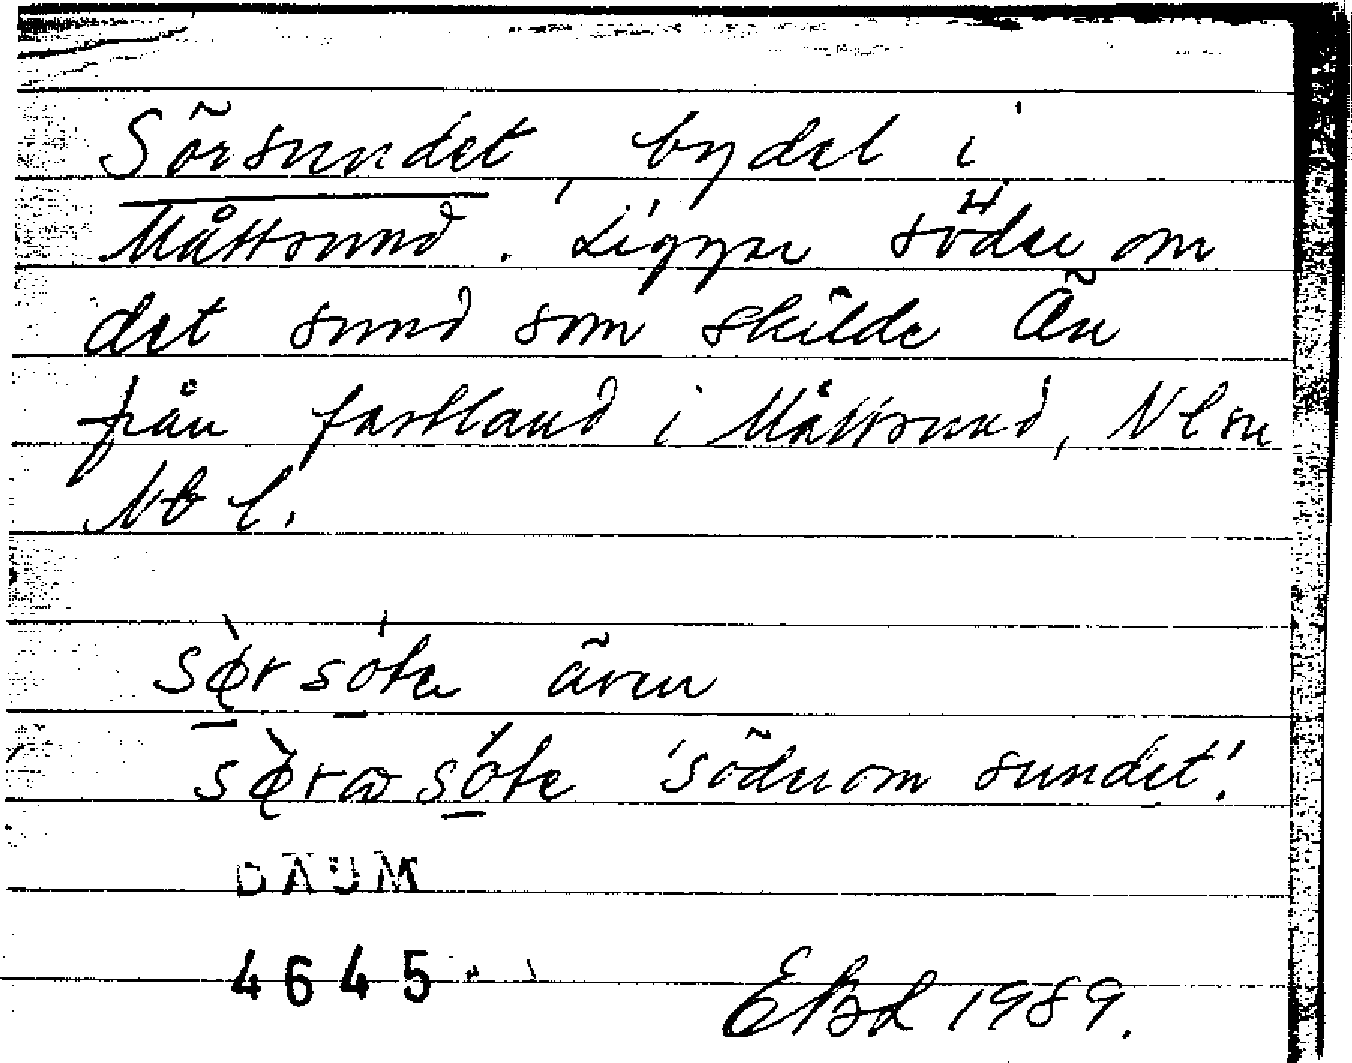 Sörsundet, bydel i
Måttsund. Ligger söder om
det sund som skilde Ån
från fastland i Måttsund, Nlsu
Nb l.
sørsóte även
sørasóte 'söder om sundet'.
DAUM
4645
EBd 1989.